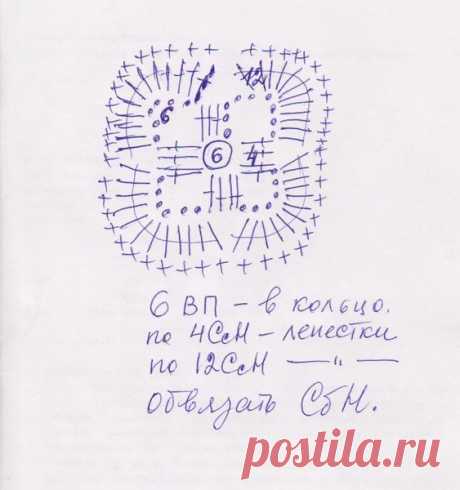 12
6
6
4
6 ВП – в кольцо.
по 4СсН – лепестки
по 12СсН — " —
обвязать СбН.
postila.ru